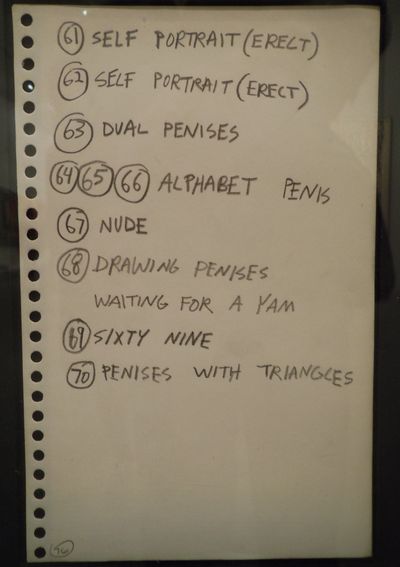 61 SELF PORTRAIT (ERECT)
62 SELF PORTRAIT (ERECT)
63 DUAL PENISES
64 65 66 ALPHABET PENIS
67 NUDE
68 DRAWING PENISES
WAITING FOR A YAM
69 SIXTY NINE
70 PENISES WITH TRIANGLES